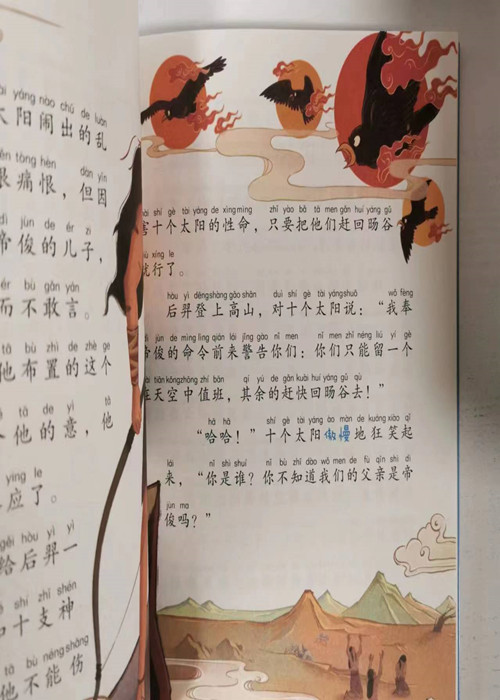 ài yáng nào chū de luàn
太阳闹出的乱
ěn tòng hèn dàn yīn
痛恨，但因
dì jùn de ér zi
帝俊的儿子，
ér bù gǎn yán
而不敢言。
tā bù zhì de zhè gè
他布置的这个
tā de yì tā
他的意，他
yìng le
应了。
gěi hòu yì yì
给后羿一
shí zhī shén
十支神
tā bù néng shāng
他不能伤
hài shí gè tài yáng de xìng mìng zhǐ yào bǎ tā men gǎn huí yáng gǔ
害十个太阳的性命，只要把他们赶回旸谷
jiù xíng le
就行了。
hòu yì dēng shàng gāo shān duì shí gè tài yáng shuō wǒ fèng
后羿登上高山，对十个太阳说：“我奉
dì jùn de mìng lìng qián lái jǐng gào nǐ men nǐ men zhǐ néng liú yí gè
帝俊的命令前来警告你们：你们只能留一个
zài tiān kōng zhōng zhí bān qí yú de gǎn kuài huí yáng gǔ qù
在天空中值班，其余的赶快回旸谷去！”
hā hā shí gè tài yáng ào màn de kuáng xiào qǐ
“哈哈！”十个太阳傲慢地狂笑起
lái nǐ shì shuí nǐ bù zhī dào wǒ men de fù qīn shì dì
来，“你是谁？你不知道我们的父亲是帝
jùn ma
俊吗？”